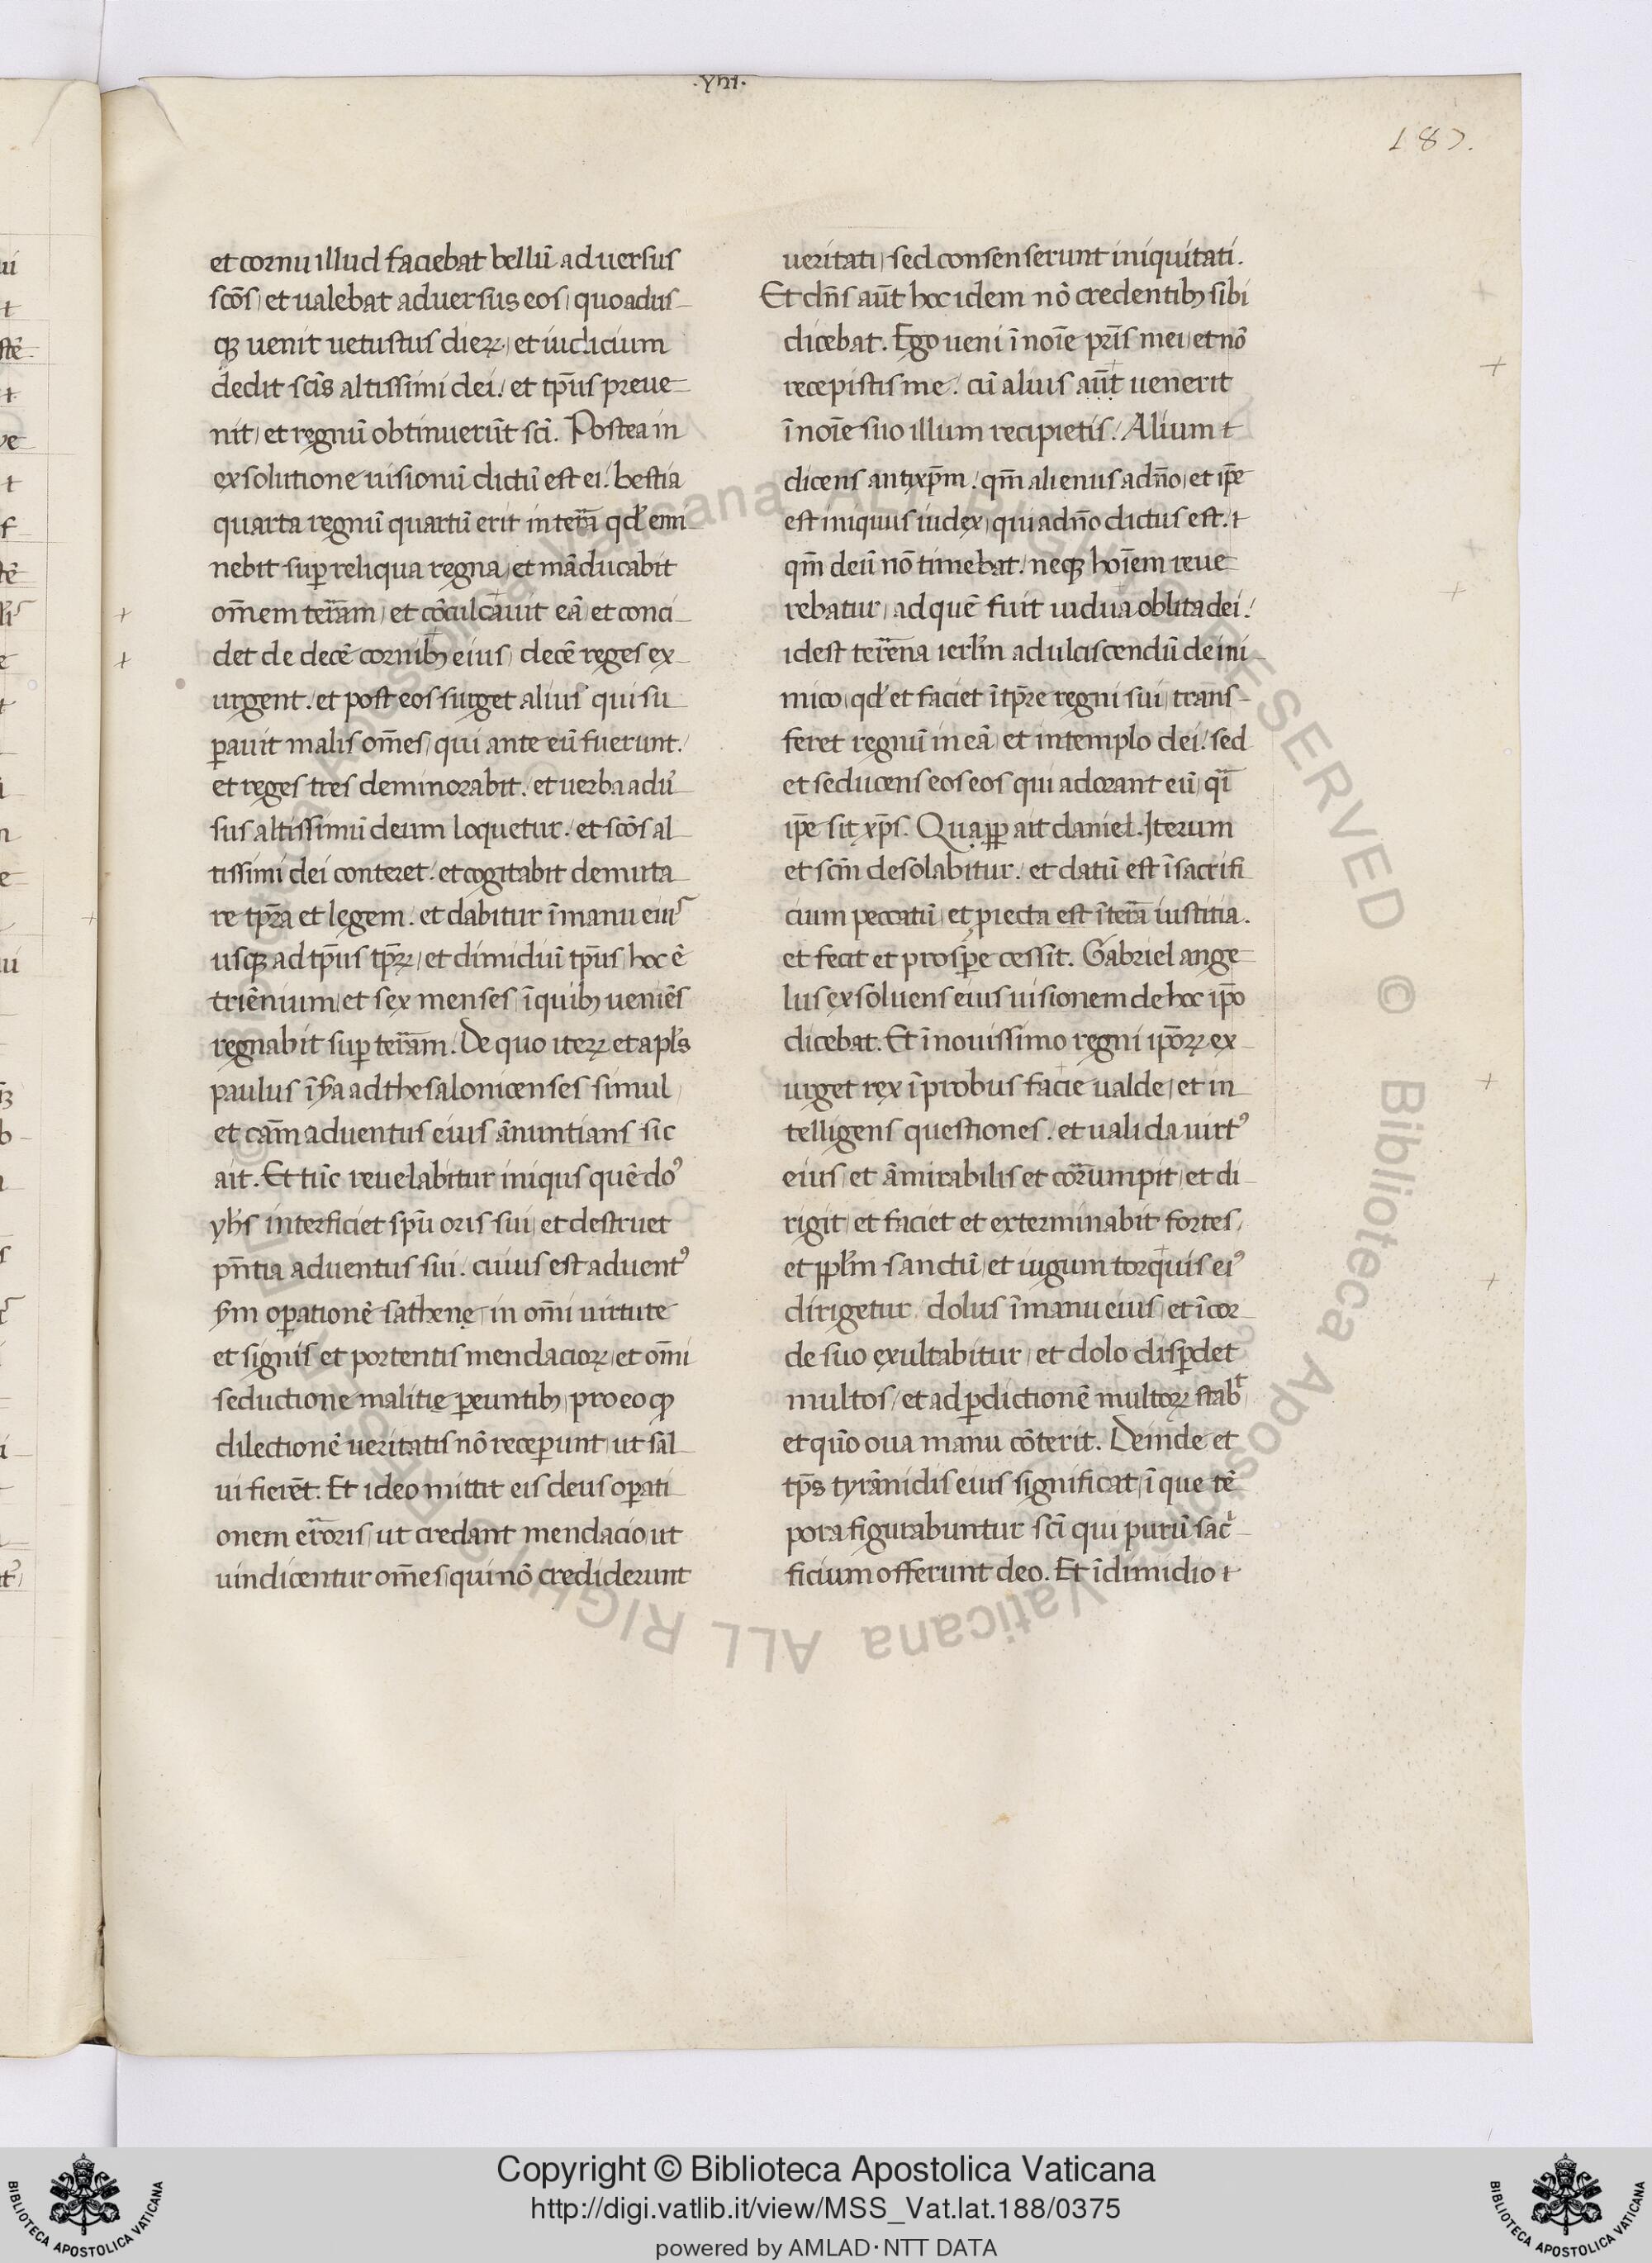 .VIII.
187.
et cornu illud faciebat bellū aduersus
scōs, et ualebat aduersus eos, quoadus-
qꝫ uenit uetustus dieꝝ, et iudicium
dedit scīs altissimi dei, et tp̄us preue-
nit, et regnū obtinuerūt scī. Postea in
exsolutione uisionū dictū est ei. bestia
quarta regnū quartū erit in terrā qd̓ emi-
nebit suꝑ reliqua regna, et māducabit
om̄em terrām, et cōculcauit eā, et conci-
det de decē cornibꝫ eius, decē reges ex-
urgent. et post eos surget alius qui su-
ꝑauit malis om̄es, qui ante eū fuerunt.
et reges tres deminorabit. et uerba adū
sus altissimū deum loquetur. et scōs al-
tissimi dei conteret. et cogitabit demuta-
re tp̄ra et legem. et dabitur ī manu eius
usqꝫ ad tp̄us tp̄ꝝ, et dimidiū tp̄us, hoc ē
triēnium, et sex menses, ī quibꝫ ueniēs
regnabit suꝑ terrām. De quo iteꝝ et apl̄s
paulus ī ẏa ad thesalonicenses simul
et cām aduentus eius ānuntians sic
ait. Et tūc reuelabitur iniqus quē do᾽
yh̄s interficiet spū oris sui, et destruet
pn̄tia aduentus sui. cuius est aduent᾽
ẏm oꝑationē sathenę, in om̄i uirtute
et signis et portentis mendacioꝝ, et om̄i
seductione malitię ꝑeuntibꝫ, pro eo ꝙ
dilectionē ueritatis nō receꝑunt, ut sāl-
ui fierēt. Et ideo mittit eis deus oꝑati-
onem errōris, ut credant mendacio, ut
uindicentur om̄es, qui nō crediderunt
ueritati, sed consenserunt iniquitati.
Et dn̄s aūt hoc idem nō credentibꝫ sibi
dicebat. Ego ueni ī noīe pr̄is mei, et nō
recepistis me. cū alius aūt uenerit
ī noīe suo illum recipietis. Alium t
dicens antixp̄m. qm̄ alienus a dn̄o, et ip̄e
est iniquus iudex, qui a dn̄o dictus est. t
qm̄ deū nō timebat. neqꝫ hoīem reue-
rebatur, ad quē fuit uidua oblita dei.
idest terrēna ierl̄m ad ulciscendū de ini-
mico, qd̓ et faciet ī tp̄re regni sui, trans-
feret regnū in eā, et in templo dei. sed
et seducens eos eos qui adorant eū, qī
ip̄e sit xp̄s. Quaꝓꝑ ait daniel. Iterum
et scm̄ desolabitur. et datū est ī sacrifi-
cium peccatū, et piecta est ī terrā iustitia.
et fecit et prosꝑe cessit. Gabriel ange-
lus exsoluens eius uisionem de hoc ip̄o
dicebat. Et ī nouissimo regni ip̄oꝝ ex-
urget rex īprobus facie ualde, et in
telligens questiones. et ualida uirt᾽
eius, et āmirabilis et corrumpit, et di-
rigit, et faciet et exterminabit fortes,
et ppl̄m sanctū, et iugum torquis ei᾽
dirigetur dolus ī manu eius, et ī cor-
de suo exultabitur, et dolo disꝑdet
multos, et ad ꝑdictionē multoꝝ stabᵗ
et quō oua manu cōterit. Deinde et
tp̄s tyrānidis eius significat, ī que tē
pora figurabuntur scī qui purū sac̄-
ficium offerunt deo. Et ī dimidio t
Copyright © Biblioteca Apostolica Vaticana
http://digi.vatlib.it/view/MSS_Vat.lat.188/0375
powered by AMLAD·NTT DATA